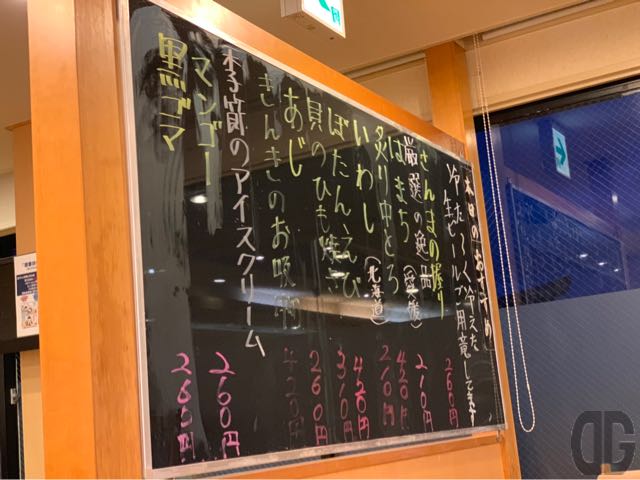 本日のおすすめ
冷た〜く冷えた
生ビールご用意してます
さんまの握り 260円
厳選の逸品 210円
はまち (愛媛) 420円
炙り中とろ 260円
いわし (北海道) 420円
ぼたんえび 310円
貝のひも焼き 260円
あじ
きんきのお吸物 420円
季節のアイスクリーム
マンゴー 260円
黒ゴマ 260円
DG